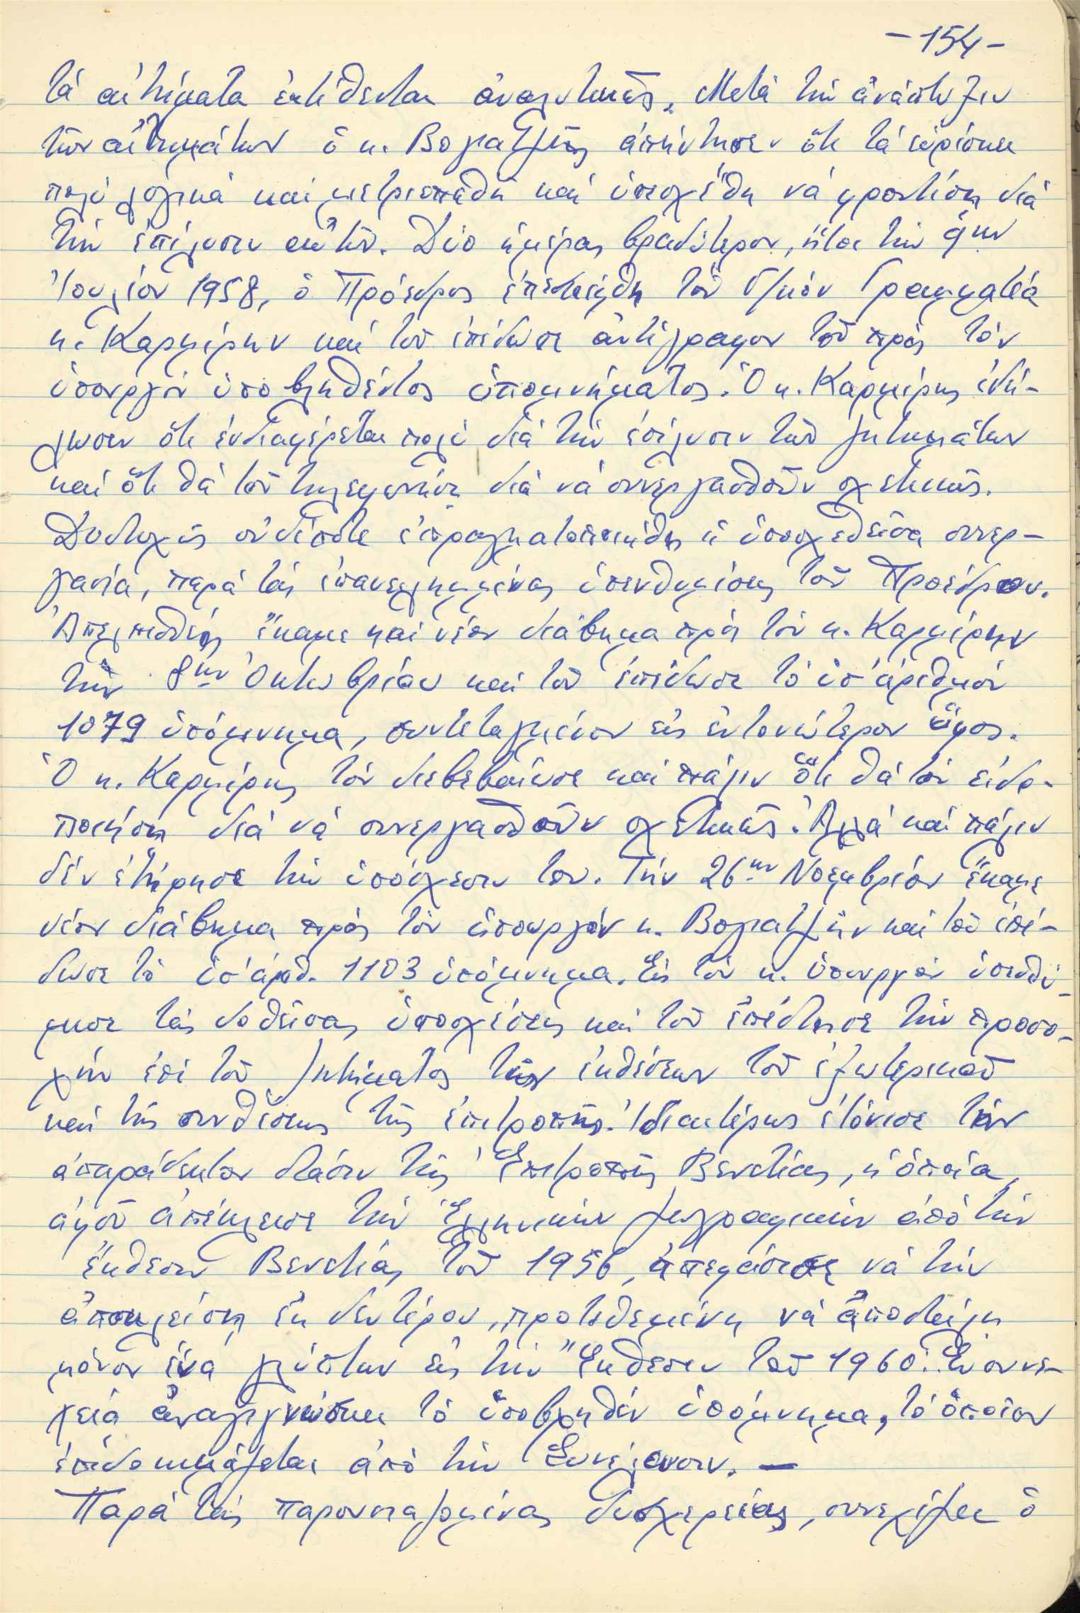 -154-
τά αἰτήματα ἐκτίθενται ἀναλυτικῶς. Μετά τήν ἀνάπτυξιν
τῶν αἰτημάτων ὁ κ. Βογιατζῆς ἀπήντησεν ὅτι τά εὑρίσκει
πολύ λογικά καί μετριοπαθῆ καί ὑπεσχέθη νά φροντίσῃ διά
τήν ἐπίλυσιν αὐτῶν. Δύο ἡμέρας βραδύτερον, ἤτοι τήν 9ην
Ἰουλίου 1958, ὁ Πρόεδρος ἐπεσκέφθη τόν Γ/κόν Γραμματέα
κ. Καρμίρην καί τοῦ ἐπέδωσε ἀντίγραφον τοῦ πρός τόν
ὑπουργόν ὑποβληθέντος ὑπομνήματος. Ὁ κ. Καρμίρης ἐδή-
λωσεν ὅτι ἐνδιαφέρεται πολύ διά τήν ἐπίλυσιν τῶν ζητημάτων
καί ὅτι θά τοῦ τηλεφωνήσῃ διά νά συνεργασθοῦν σχετικῶς.
Δυστυχῶς οὐδέποτε ἐπραγματοποιήθη ἡ ὑποσχεθεῖσα συνερ-
γασία, παρά τάς ἐπανειλημμένας ὑπενθυμίσεις τοῦ Προέδρου.
Ἀπελπισθείς ἔκαμε καί νέον διάβημα πρός τόν κ. Καρμίρην
τήν 8ην Ὀκτωβρίου καί τοῦ ἐπέδωσε τό ὑπ' ἀριθμόν
1079 ὑπόμνημα, συντεταγμένον εἰς ἐντονώτερον ὕφος.
Ὁ κ. Καρμίρης τόν διεβεβαίωσε καί πάλιν ὅτι θά τόν εἰδο-
ποιήσῃ διά νά συνεργασθοῦν σχετικῶς. Ἀλλά καί πάλιν
δέν ἐτήρησε τήν ὑπόσχεσιν του. Τήν 26ην Νοεμβρίου ἔκαμε
νέον διάβημα πρός τόν ὑπουργόν κ. Βογιατζῆν καί τοῦ ἐπέ-
δωσε τό ὑπ' ἀριθ. 1103 ὑπόμνημα. Εἰς τόν κ. ὑπουργόν ὑπενθύ-
μισε τάς δοθείσας ὑποσχέσεις καί τοῦ ἐπέστησε τήν προσο-
χήν ἐπί τοῦ ζητήματος τῶν ἐκθέσεων τοῦ ἐξωτερικοῦ
καί τῆς συνθέσεως τῆς ἐπιτροπῆς. Ἰδιαιτέρως ἐτόνισε τήν
ἀπαράδεκτον στάσιν τῆς Ἐπιτροπῆς Βενετίας, ἡ ὁποία,
ἀφοῦ ἀπέκλεισε τήν Ἑλληνικήν ζωγραφικήν ἀπό τήν
ἔκθεσιν Βενετίας τοῦ 1956, ἀπεφάσισε νά τήν
ἀποκλείσῃ ἐκ δευτέρου, προτιθεμένη νά ἀποστείλῃ
μόνον ἕνα γλύπτην εἰς τήν Ἔκθεσιν τοῦ 1960. Ἐν συνε-
χείᾳ ἀναγιγνώσκει τό ὑποβληθέν ὑπόμνημα, τό ὁποῖον
ἐπιδοκιμάζεται ἀπό τήν Συνέλευσιν. —
Παρά τάς παρουσιαζομένας δυσχερείας, συνεχίζει ὁ